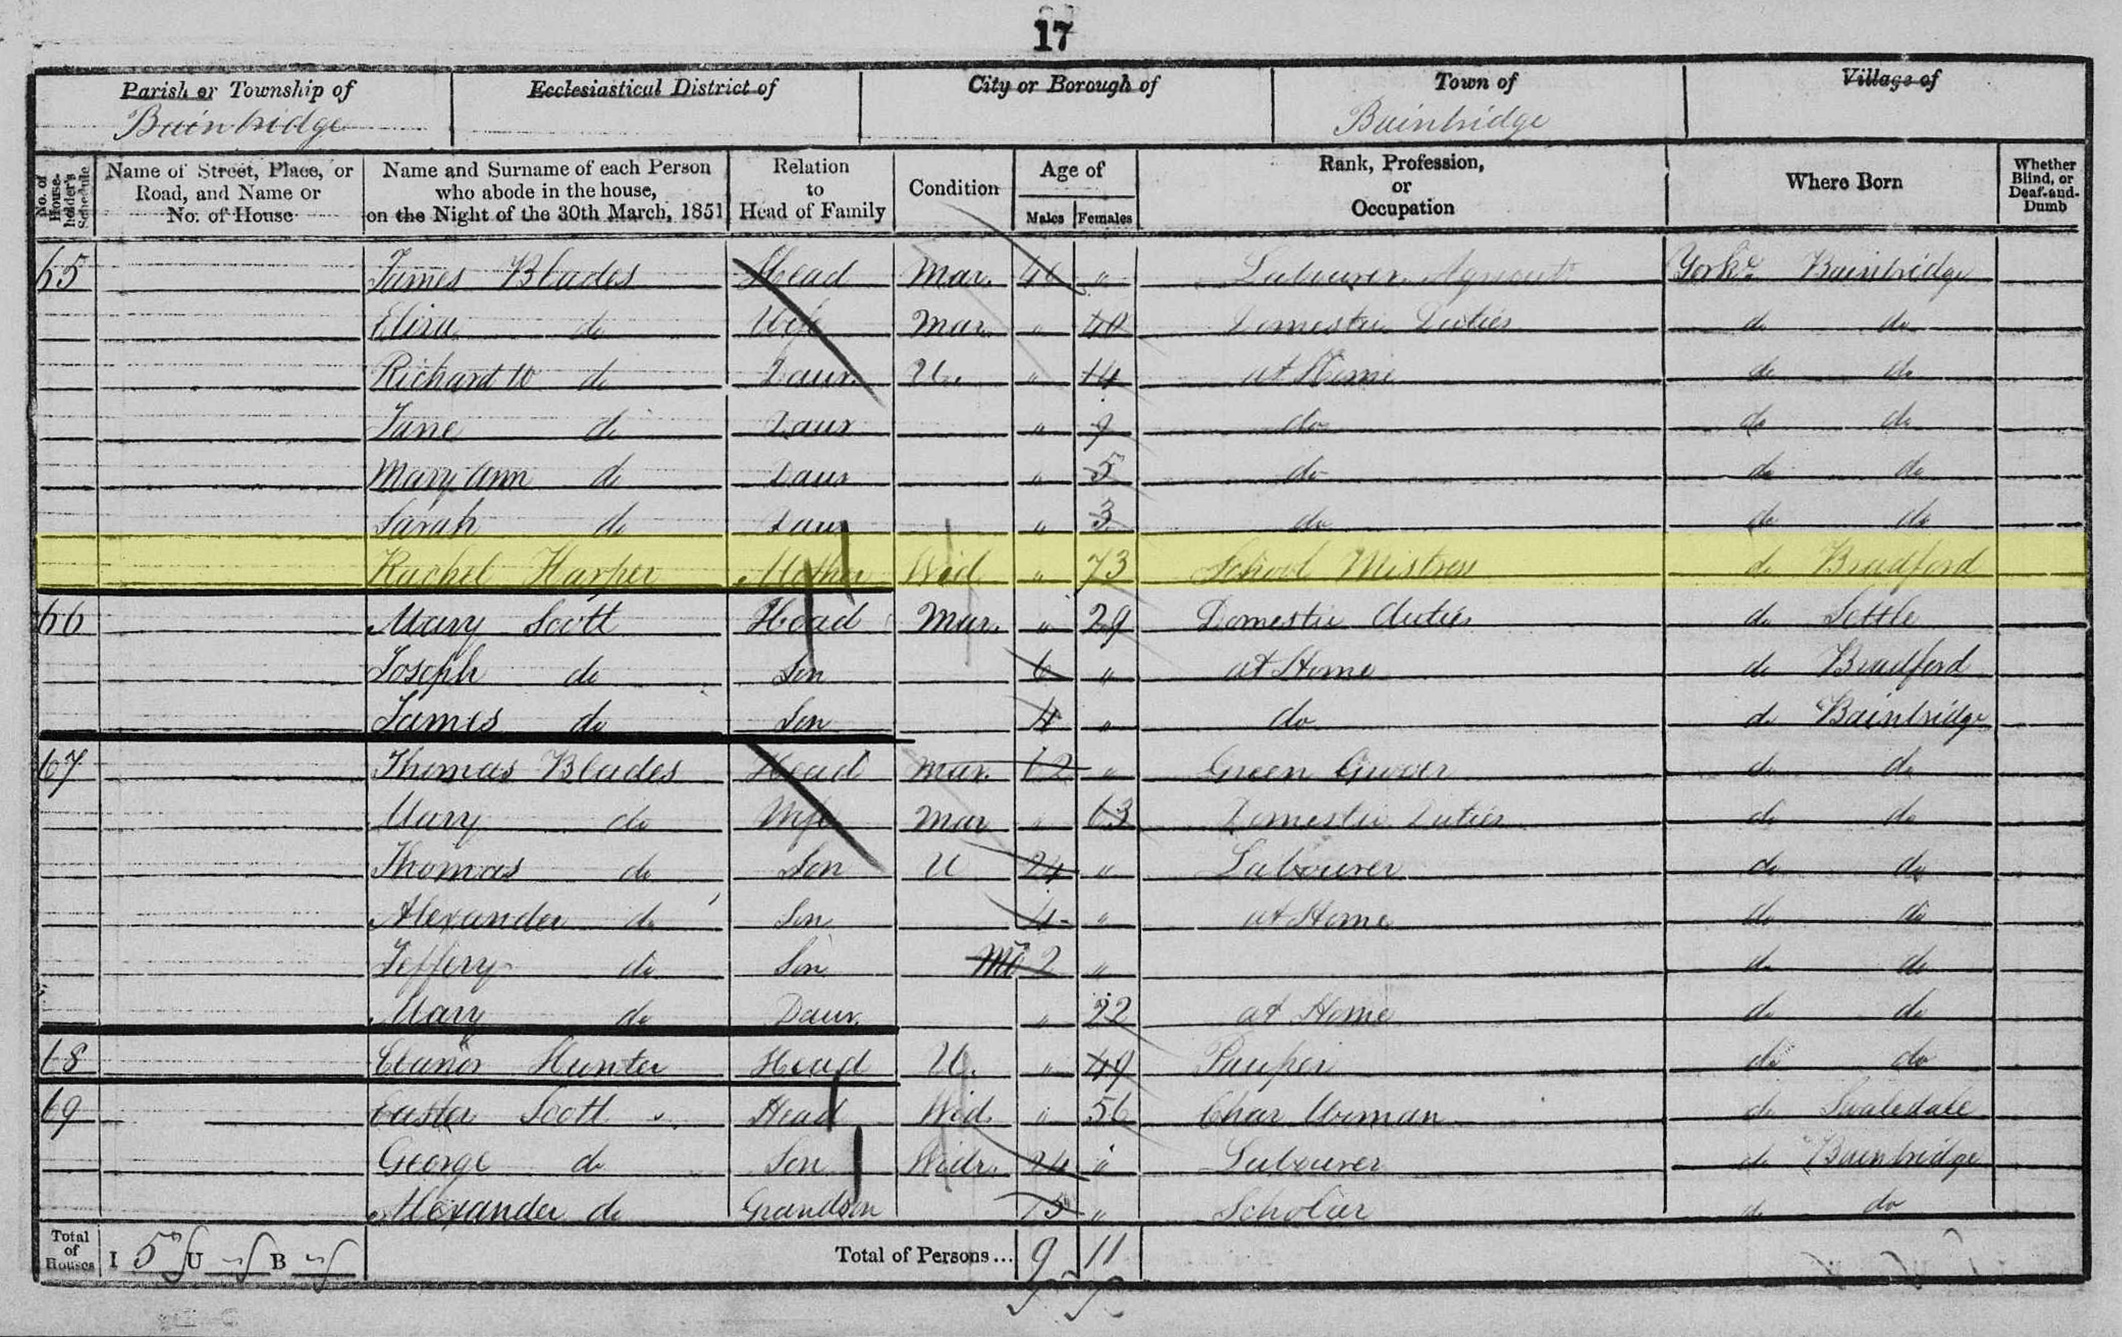 17
Parish or Township of Ecclesiastical District of City or Borough of Town of Village of
Bainbridge Bainbridge
No. of House-holder's Schedule Name of Street, Place, or Road, and Name or No. of House Name and Surname of each Person who abode in the house, on the Night of the 30th March, 1851 Relation to Head of Family Condition Age of Males Females Rank, Profession, or Occupation Where Born Whether Blind, or Deaf-and-Dumb
65 James Blades Head Mar. 46 " Labourer Yorke. Bainbridge
Eliza do Wife Mar. " 40 Domestic Duties do do
Richard W do Daur. U. " 14 at Home do do
Jane do Daur " 9 do do do
Mary Ann do Daur " 5 do do do
Sarah do Daur " 3 do do do
Rachel Harper Mother Wid " 73 School Mistress do Bradford
66 Mary Scott Head Mar. " 29 Domestic duties do Settle
Joseph do Son 6 " at Home do Bradford
James do Son 4 " do do Bainbridge
67 Thomas Blades Head Mar. 62 " Green Grocer do do
Mary do Wife Mar " 63 Domestic Duties do do
Thomas do Son U 24 " Labourer do do
Alexander do Son 4 " at Home do do
Jeffery do Son Mo 2 " do do
Mary do Daur. " 22 at Home do do
68 Eleanor Hunter Head U. " 49 Pauper do do
69 Easter Scott Head Wid. " 56 Char Woman do Swaledale
George do Son Widr. 24 " Labourer do Bainbridge
Alexander do Grandson 15 " Scholar do do
Total of Houses I 5 U B Total of Persons... 9 11